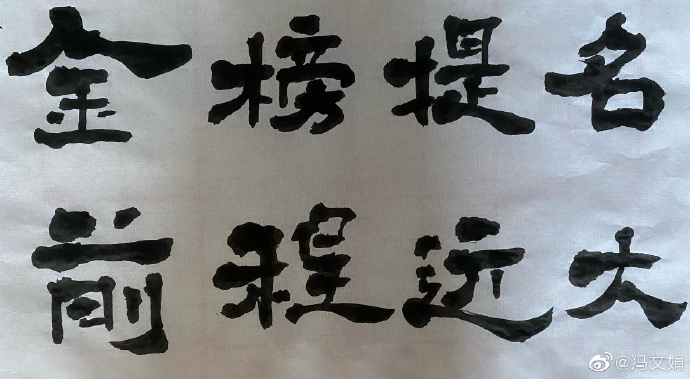 金榜提名
前程近大
@冯文娟